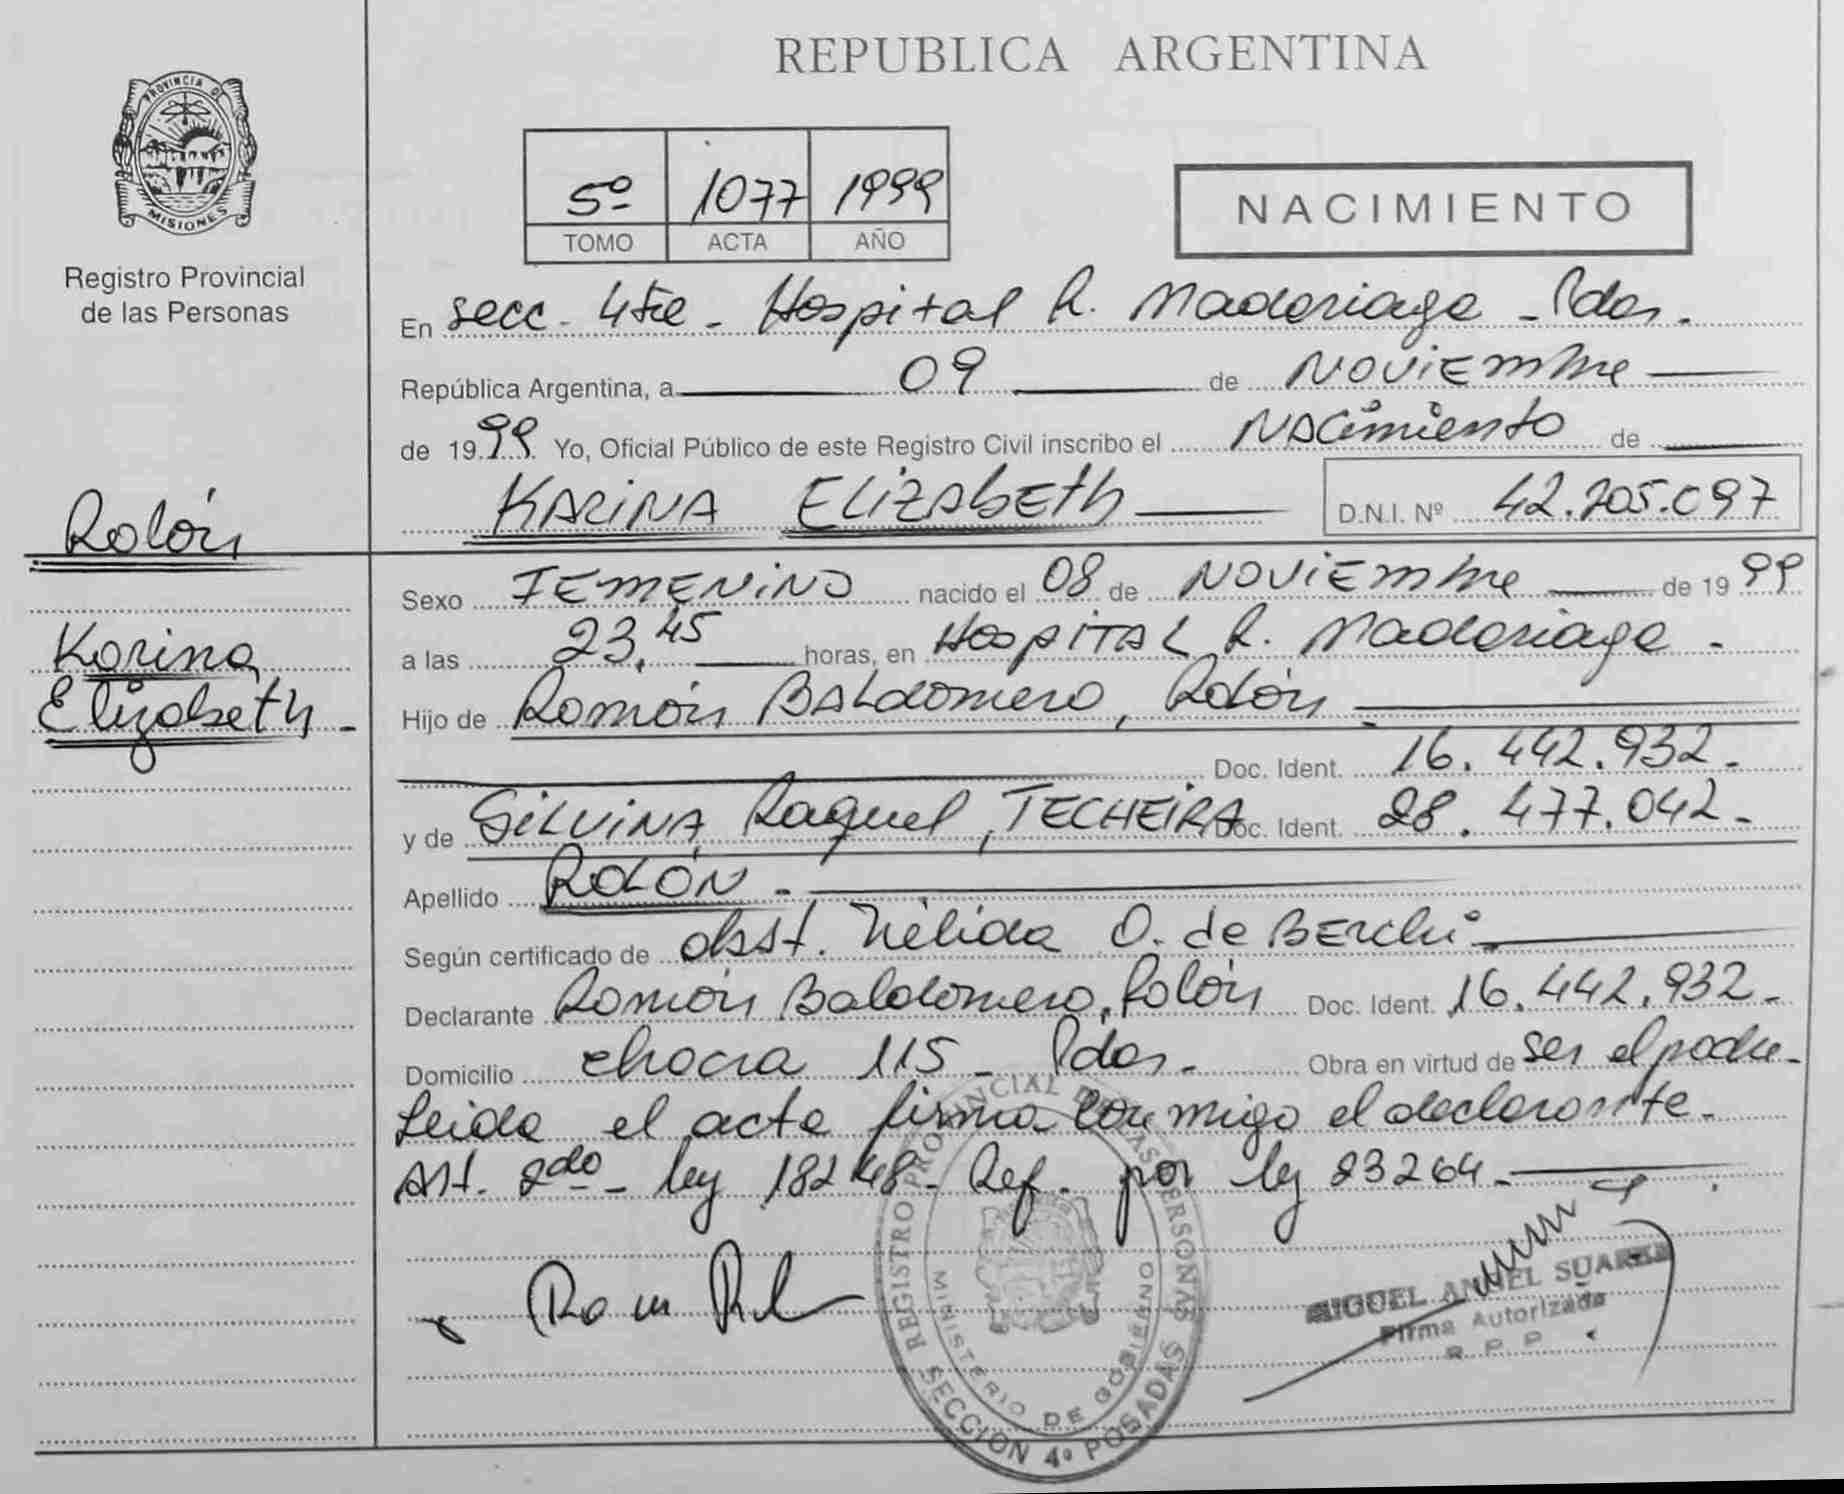 REPUBLICA ARGENTINA
PROVINCIA DE
MISIONES
Registro Provincial
de las Personas
5º 1077 1999
TOMO ACTA AÑO
NACIMIENTO
En secc. 4ta - Hospital R. Madariaga - Pdas.
República Argentina, a 09 de Noviembre
de 1999 Yo, Oficial Público de este Registro Civil inscribo el Nacimiento de
KARINA ELIZABETH D.N.I. Nº 42.205.097
Rolón
Karina
Elizabeth -
Sexo FEMENINO nacido el 08 de NOVIEMbre de 1999
a las 23,45 horas, en HospITAL R. Madariaga -
Hijo de Ramón BALdomero, Rolón
Doc. Ident. 16.442.932.-
y de SILVINA Raquel, TECHEIRA Doc. Ident. 28.477.042.-
Apellido ROLÓN -
Según certificado de obst. Nélida O. de BErchi -
Declarante Ramón Baldomero, Rolón Doc. Ident. 16.442.932.-
Domicilio chacra 115 - Pdas. Obra en virtud de ser el padre -
Leida el acta firma conmigo el declarante.
Art. 2do - ley 18248 - Ref. por ley 23264 -
MIGUEL ANGEL SUAREZ
Firma Autorizada
R. P. P.
REGISTRO PROVINCIAL DE LAS PERSONAS
MINISTERIO DE GOBIERNO
SECCION 4º POSADAS